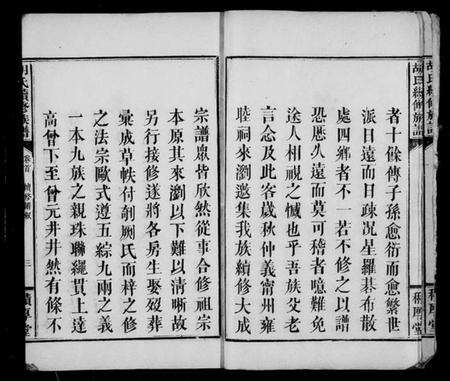 胡氏續修族譜
積厚堂
者十餘傳子孫愈衍而愈繁世
派日遠而日疎况星羅碁布散
處四鄉者不一若不修之以譜
恐歷久遠而莫可稽者隱難免
途人相視之憾也乎吾族父老
言念及此客歲秋仲義甯州雍
睦祠來瀏邀集我族續修大成
宗譜眾皆欣然從事合修祖宗
本原其來瀏以下難以清晰故
另行接修遂將各房生娶歿葬
彙成草帙付剞劂氏而梓之修
之法宗歐式遵五綜九兩之義
一本九族之親珠聯繩貫上達
高曾下至曾元井井然有條不
胡氏續修族譜
卷首
三
積厚堂